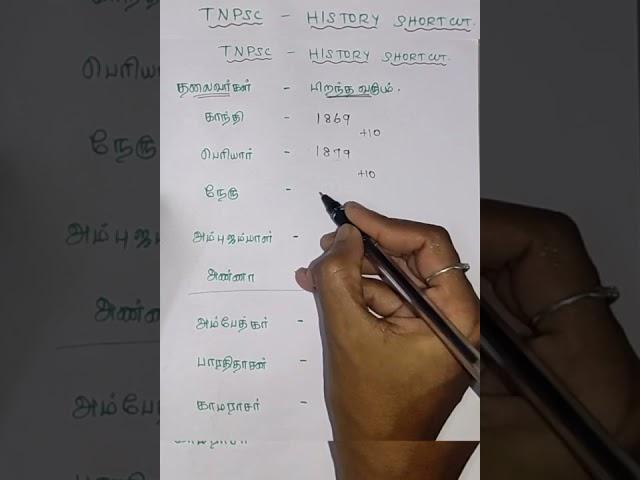 TNPSC - HISTORY SHORTCUT.
TNPSC - HISTORY SHORTCUT.
தலைவர்கள் - பிறந்த வருடம்.
காந்தி - 1869
+10
பெரியார் - 1879
+10
நேரு -
அம்புஜம்மாள் -
அண்ணா
அம்பேத்கர் -
பாரதிதாசன் -
காமராசர் -